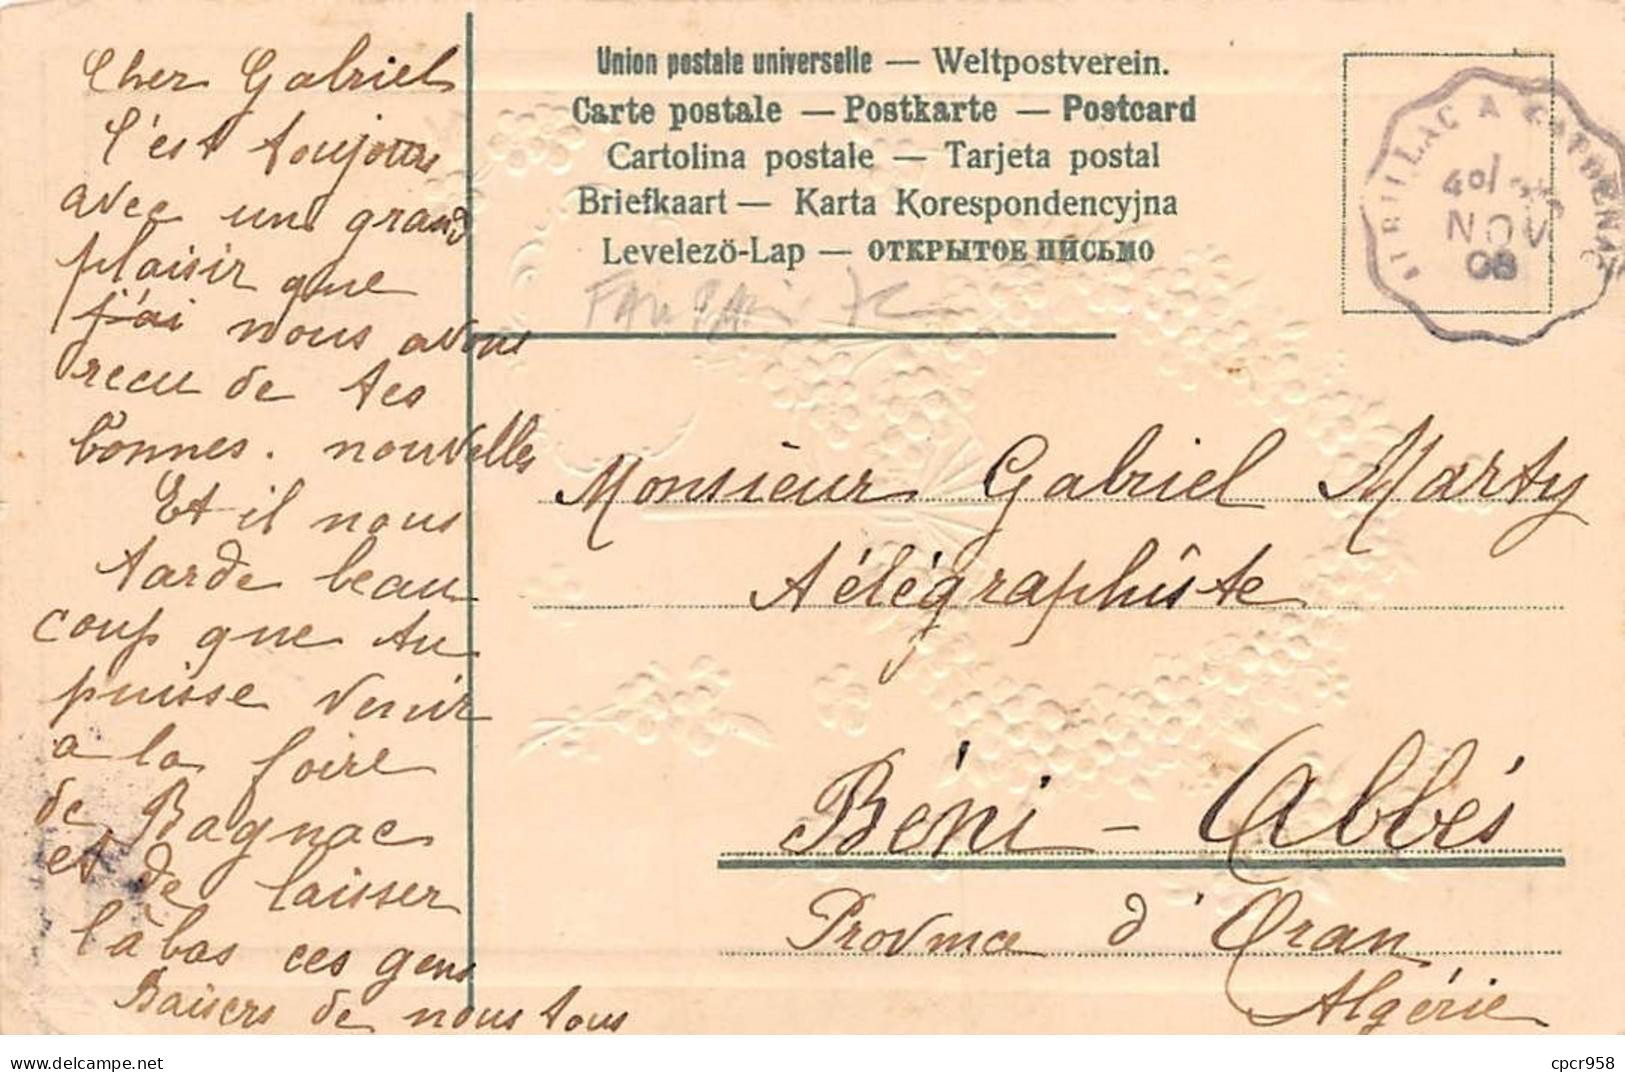 Union postale universelle — Weltpostverein.
Carte postale — Postkarte — Postcard
Cartolina postale — Tarjeta postal
Briefkaart — Karta Korespondencyjna
Levelező-Lap — ОТКРЫТОЕ ПИСЬМО
AURILLAC A CAPDENAC
NOV
08
Cher Gabriel
C'est toujours
avec un grand
plaisir que
j'ai nous avons
recu de tes
bonnes. nouvelles
Et il nous
tarde beau
coup que tu
puisse venir
a la foire
de Bagnac
et de laisser
là bas ces gens
Baisers de nous tous
Monsieur Gabriel Marty
télégraphiste
Béni - Abbés
Province d'Oran
Algérie
delcampe.net
cpcr958